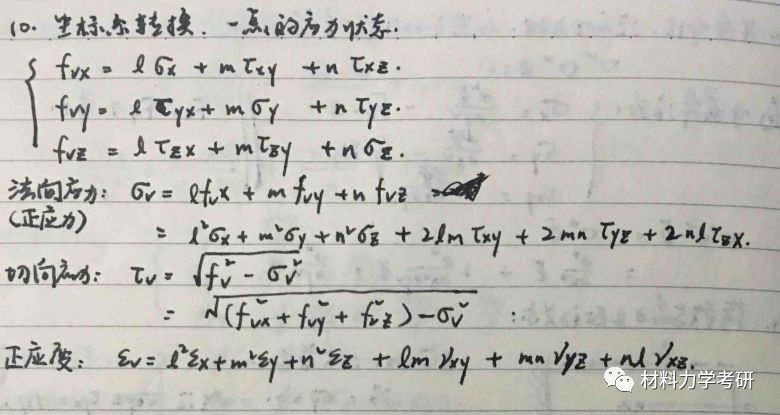 10. 坐标系转换. 一点的应力状态.
{ fνx = lσx + mτxy + nτxz.
fνy = lτyx + mσy + nτyz.
fνz = lτzx + mτzy + nσz.
法向应力: σν = lfνx + mfνy + nfνz
(正应力)
= l²σx + m²σy + n²σz + 2lmτxy + 2mnτyz + 2nlτzx.
切向应力: τν = √(fν² - σν²)
= √((fνx² + fνy² + fνz²) - σν²)
正应变: εν = l²εx + m²εy + n²εz + lmγxy + mnγyz + nlγxz.
材料力学考研